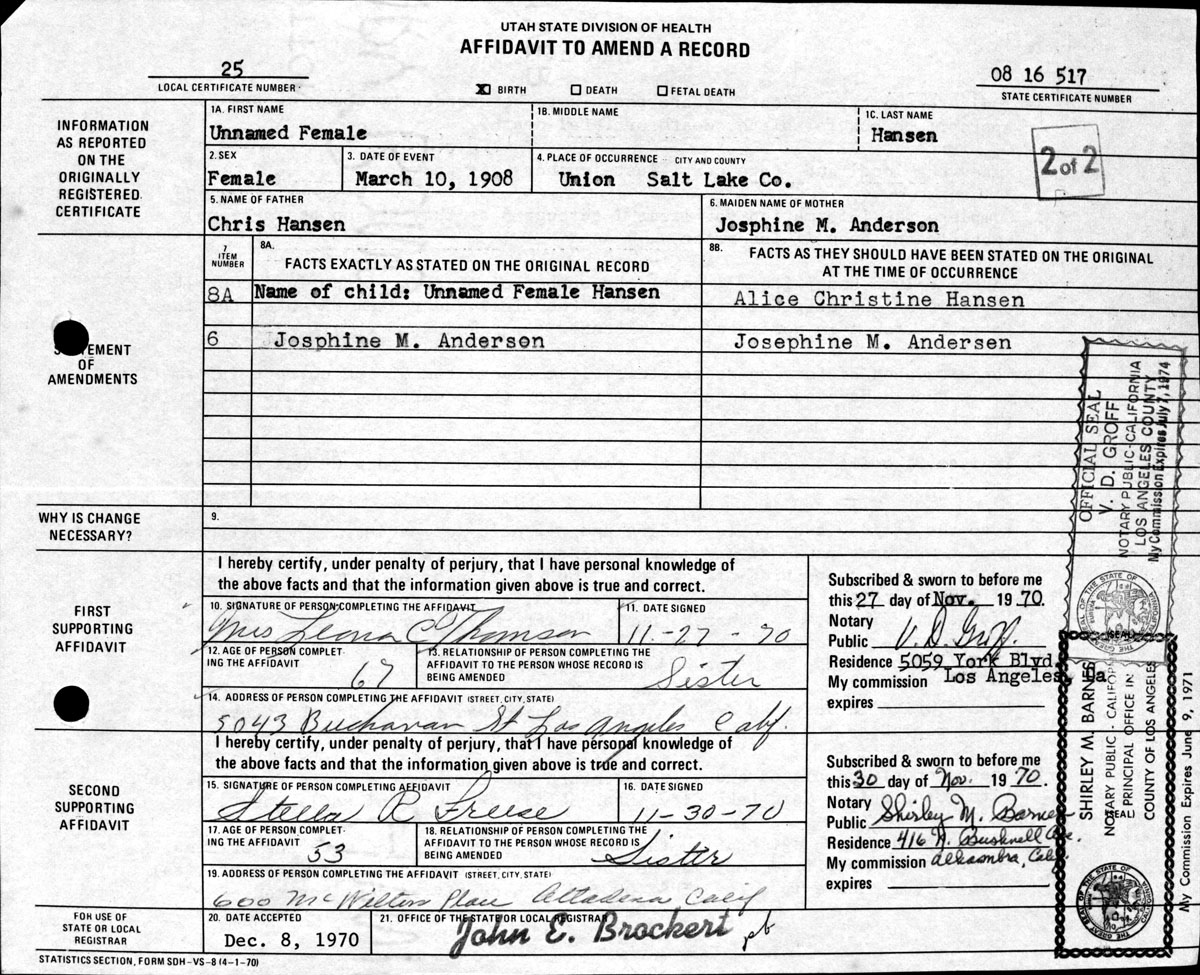 UTAH STATE DIVISION OF HEALTH
AFFIDAVIT TO AMEND A RECORD
25
LOCAL CERTIFICATE NUMBER
X BIRTH DEATH FETAL DEATH
08 16 517
STATE CERTIFICATE NUMBER
INFORMATION
AS REPORTED
ON THE
ORIGINALLY
REGISTERED
CERTIFICATE
1A. FIRST NAME
Unnamed Female
1B. MIDDLE NAME
1C. LAST NAME
Hansen
2 of 2
2. SEX
Female
3. DATE OF EVENT
March 10, 1908
4. PLACE OF OCCURRENCE - CITY AND COUNTY
Union Salt Lake Co.
5. NAME OF FATHER
Chris Hansen
6. MAIDEN NAME OF MOTHER
Josphine M. Anderson
OF
AMENDMENTS
7
ITEM
NUMBER
8A.
FACTS EXACTLY AS STATED ON THE ORIGINAL RECORD
8B.
FACTS AS THEY SHOULD HAVE BEEN STATED ON THE ORIGINAL
AT THE TIME OF OCCURRENCE
8A Name of child: Unnamed Female Hansen Alice Christine Hansen
6 Josphine M. Anderson Josephine M. Andersen
WHY IS CHANGE
NECESSARY?
9.
FIRST
SUPPORTING
AFFIDAVIT
I hereby certify, under penalty of perjury, that I have personal knowledge of
the above facts and that the information given above is true and correct.
10. SIGNATURE OF PERSON COMPLETING THE AFFIDAVIT
Mrs Leona C Thomson
11. DATE SIGNED
11-27-70
12. AGE OF PERSON COMPLET-
ING THE AFFIDAVIT
67
13. RELATIONSHIP OF PERSON COMPLETING THE
AFFIDAVIT TO THE PERSON WHOSE RECORD IS
BEING AMENDED
Sister
14. ADDRESS OF PERSON COMPLETING THE AFFIDAVIT (STREET, CITY, STATE)
5043 Buchanan St Los Angeles Calif.
Subscribed & sworn to before me
this 27 day of Nov. 19 70.
Notary
Public V. D. Groff
Residence 5059 York Blvd
My commission Los Angeles, Ca
expires
SECOND
SUPPORTING
AFFIDAVIT
I hereby certify, under penalty of perjury, that I have personal knowledge of
the above facts and that the information given above is true and correct.
15. SIGNATURE OF PERSON COMPLETING AFFIDAVIT
Stella R Freese
16. DATE SIGNED
11-30-70
17. AGE OF PERSON COMPLET-
ING THE AFFIDAVIT
53
18. RELATIONSHIP OF PERSON COMPLETING THE
AFFIDAVIT TO THE PERSON WHOSE RECORD IS
BEING AMENDED
Sister
19. ADDRESS OF PERSON COMPLETING THE AFFIDAVIT (STREET, CITY, STATE)
600 Place Altadena Calif
Subscribed & sworn to before me
this 30 day of Nov. 19 70.
Notary
Public Shirley M. Barnes
Residence 416 N. Bushnell Ave.
My commission Alhambra, Cal.
expires
FOR USE OF
STATE OR LOCAL
REGISTRAR
20. DATE ACCEPTED
Dec. 8, 1970
21. OFFICE OF THE STATE OR LOCAL REGISTRAR
John E. Brockert pb
STATISTICS SECTION, FORM SDH-VS-8 (4-1-70)
OFFICIAL SEAL
V. D. GROFF
NOTARY PUBLIC-CALIFORNIA
LOS ANGELES COUNTY
My Commission Expires July 7, 1974
SHIRLEY M. BARNES
NOTARY PUBLIC - CALIFORNIA
PRINCIPAL OFFICE IN
COUNTY OF LOS ANGELES
My Commission Expires June 9, 1971